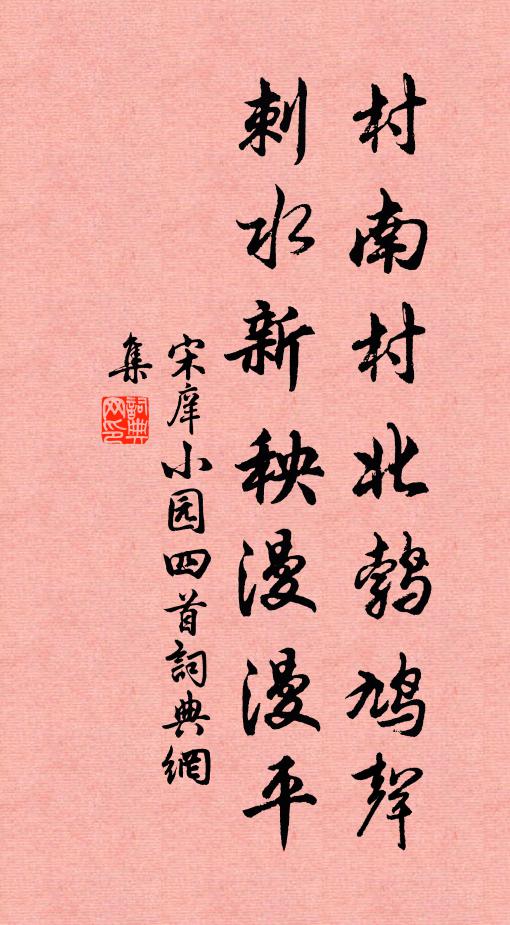 村南村北鹁鸠聲
刺水新秧漫漫平
宋庠小园四首詞典網
集
詞典
网印